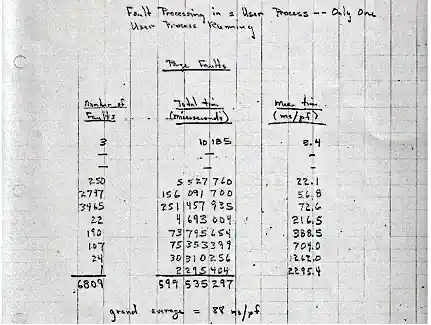 Fault Processing in a User Process -- Only One
User Process Running
Page Faults
Number of Total time Mean time
Faults (microseconds) (ms/pf)
3 10 185 3.4
— — —
— — —
250 5 527 760 22.1
2747 156 091 700 56.8
3465 251 457 935 72.6
22 4 693 004 216.5
190 73 795 654 388.5
107 75 353 399 704.0
24 30 310 256 1262.0
1 2 295 404 2295.4
6809 599 535 297
grand average = 88 ms/pf